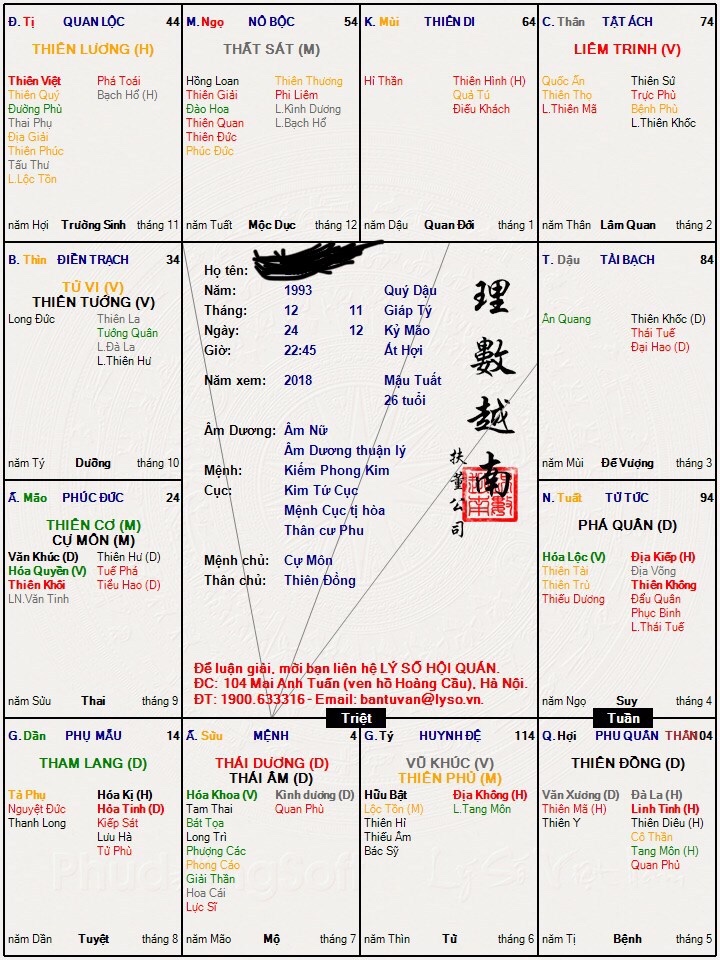 Đ. Tị QUAN LỘC 44
THIÊN LƯƠNG (H)
Thiên Việt Phá Toái
Thiên Quý Bạch Hổ (H)
Đường Phù
Thai Phụ
Địa Giải
Thiên Phúc
Tấu Thư
L.Lộc Tồn
năm Hợi Trường Sinh tháng 11
M. Ngọ NÔ BỘC 54
THẤT SÁT (M)
Hồng Loan Thiên Thương
Thiên Giải Phi Liêm
Đào Hoa L.Kình Dương
Thiên Quan L.Bạch Hổ
Thiên Đức
Phúc Đức
năm Tuất Mộc Dục tháng 12
K. Mùi THIÊN DI 64
Hỉ Thần Thiên Hình (H)
Quả Tú
Điếu Khách
năm Dậu Quan Đới tháng 1
C. Thân TẬT ÁCH 74
LIÊM TRINH (V)
Quốc Ấn Thiên Sứ
Thiên Thọ Trực Phù
L.Thiên Mã Bệnh Phù
L.Thiên Khốc
năm Thân Lâm Quan tháng 2
B. Thìn ĐIỀN TRẠCH 34
TỬ VI (V)
THIÊN TƯỚNG (V)
Long Đức Thiên La
Tướng Quân
L.Đà La
L.Thiên Hư
năm Tý Dưỡng tháng 10
Họ tên:
Năm: 1993 Quý Dậu
Tháng: 12 11 Giáp Tý
Ngày: 24 12 Kỷ Mão
Giờ: 22:45 Ất Hợi
Năm xem: 2018 Mậu Tuất
26 tuổi
Âm Dương: Âm Nữ
Âm Dương thuận lý
Mệnh: Kiếm Phong Kim
Cục: Kim Tứ Cục
Mệnh Cục tị hòa
Thân cư Phu
Mệnh chủ: Cự Môn
Thân chủ: Thiên Đồng
理數越南
扶董公司
Để luận giải, mời bạn liên hệ LÝ SỐ HỘI QUÁN.
ĐC: 104 Mai Anh Tuấn (ven hồ Hoàng Cầu), Hà Nội.
ĐT: 1900.633316 - Email: bantuvan@lyso.vn.
T. Dậu TÀI BẠCH 84
Ân Quang Thiên Khốc (D)
Thái Tuế
Đại Hao (D)
năm Mùi Đế Vượng tháng 3
Ấ. Mão PHÚC ĐỨC 24
THIÊN CƠ (M)
CỰ MÔN (M)
Văn Khúc (D) Thiên Hư (D)
Hóa Quyền (V) Tuế Phá
Thiên Khôi Tiểu Hao (D)
LN.Văn Tinh
năm Sửu Thai tháng 9
N. Tuất TỬ TỨC 94
PHÁ QUÂN (D)
Hóa Lộc (V) Địa Kiếp (H)
Thiên Tài Địa Võng
Thiên Trù Thiên Không
Thiếu Dương Đẩu Quân
Phục Binh
L.Thái Tuế
năm Ngọ Suy tháng 4
Triệt
Tuần
G. Dần PHỤ MẪU 14
THAM LANG (D)
Tả Phụ Hóa Kị (H)
Nguyệt Đức Hỏa Tinh (D)
Thanh Long Kiếp Sát
Lưu Hà
Tử Phù
năm Dần Tuyệt tháng 8
Ấ. Sửu MỆNH 4
THÁI DƯƠNG (D)
THÁI ÂM (D)
Hóa Khoa (V) Kình dương (D)
Tam Thai Quan Phù
Bát Tọa
Long Trì
Phượng Các
Phong Cáo
Giải Thần
Hoa Cái
Lực Sĩ
năm Mão Mộ tháng 7
G. Tý HUYNH ĐỆ 114
VŨ KHÚC (V)
THIÊN PHỦ (M)
Hữu Bật Địa Không (H)
Lộc Tồn (M) L.Tang Môn
Thiên Hỉ
Thiếu Âm
Bác Sỹ
năm Thìn Tử tháng 6
Q. Hợi PHU QUÂN THÂN 104
THIÊN ĐỒNG (D)
Văn Xương (D) Đà La (H)
Thiên Mã (H) Linh Tinh (H)
Thiên Y Thiên Diêu (H)
Cô Thần
Tang Môn (H)
Quan Phủ
năm Tị Bệnh tháng 5